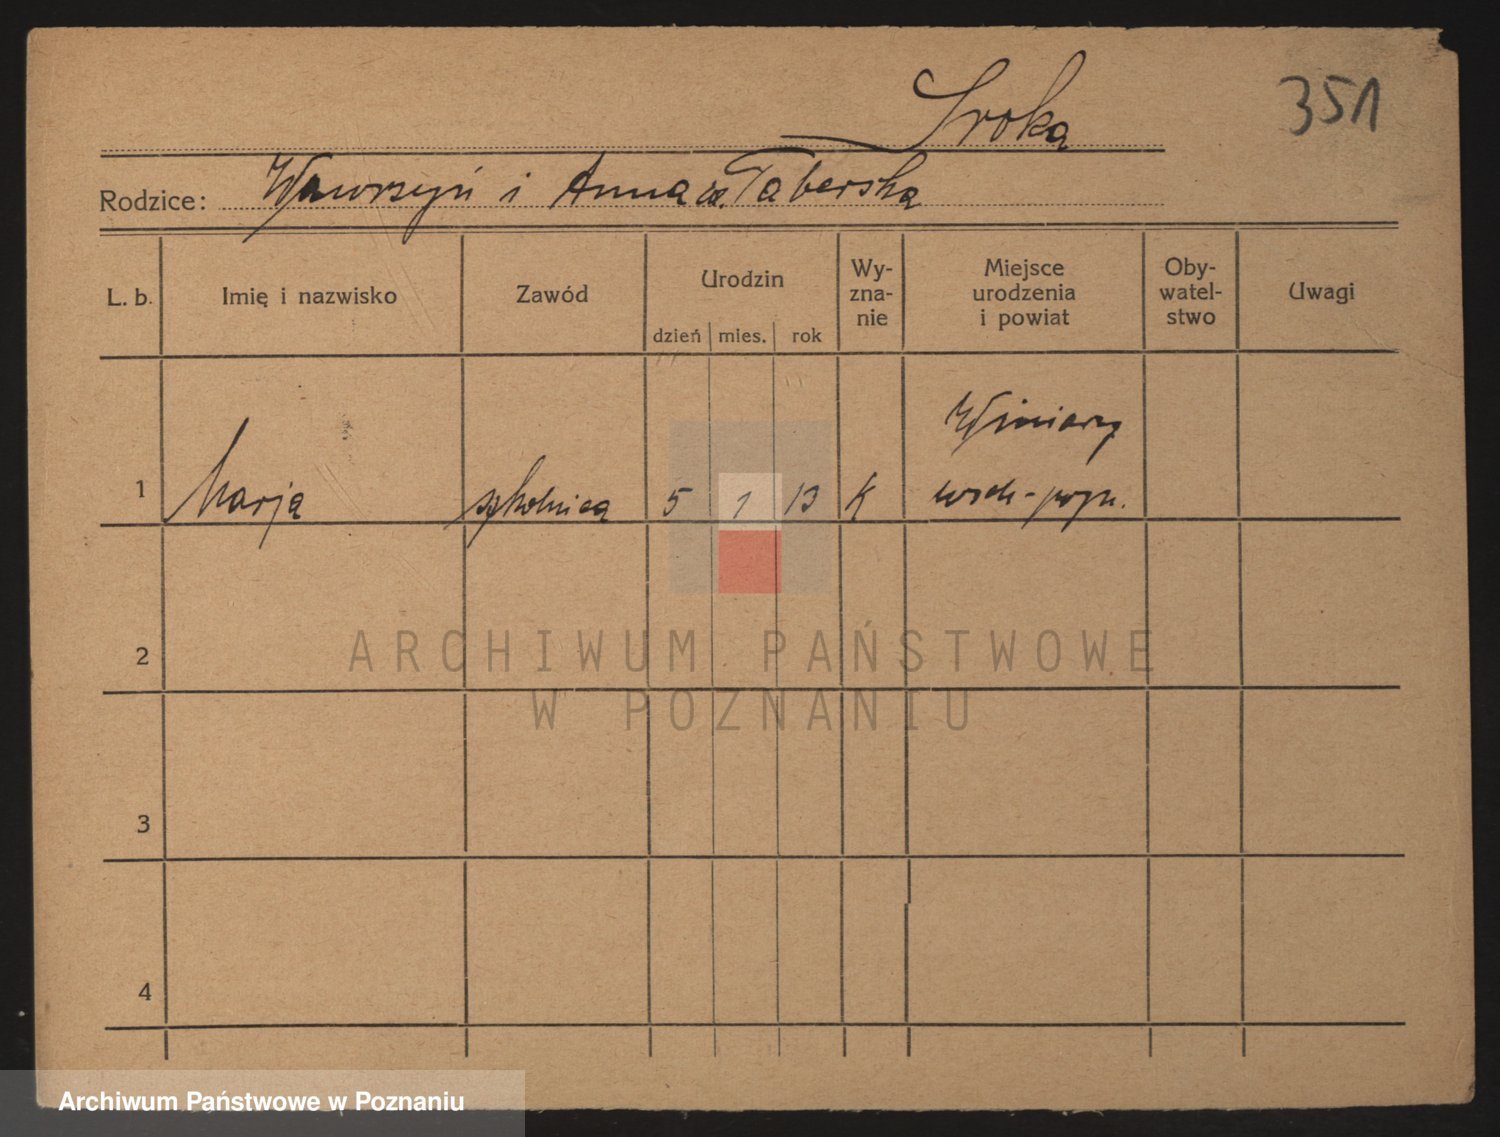 Sroka
351
Rodzice: Wawrzyn i Anna zd. Taberska
L. b. Imię i nazwisko Zawód Urodzin dzień mies. rok Wy-zna-nie Miejsce urodzenia i powiat Oby-watel-stwo Uwagi
Winiary
1 Marja szkolnica 5 1 13 K wsch-pozn.
2
ARCHIWUM PAŃSTWOWE
W POZNANIU
3
4
Archiwum Państwowe w Poznaniu